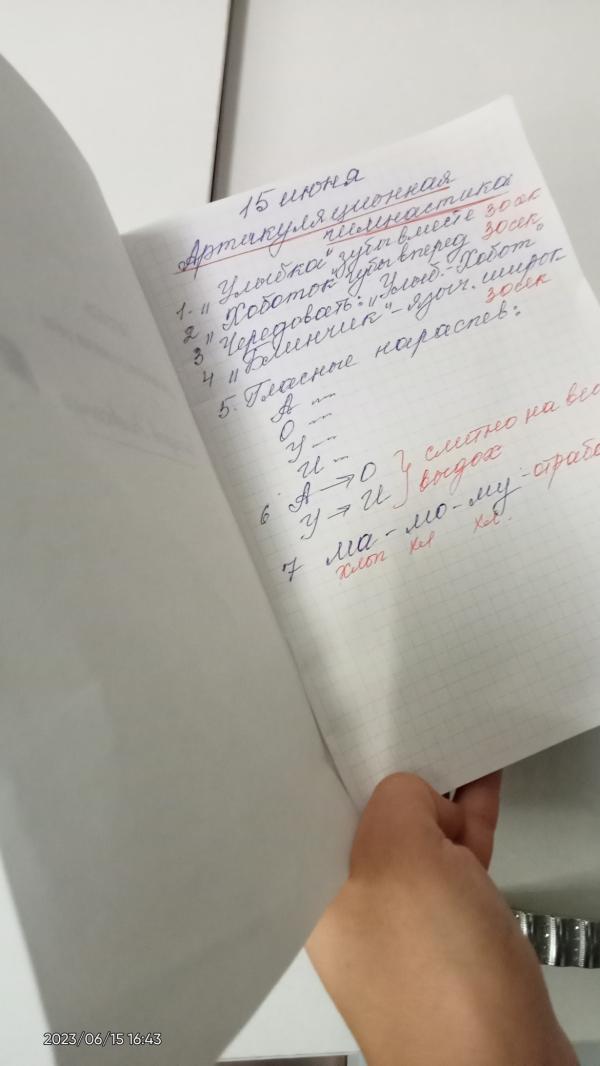 15 июня
Артикуляционная
гимнастика
1. „Улыбка" зубы вместе 30 сек
2 „Хоботок" губы вперед 30 сек
3 Чередовать: „Улыб.-Хобот„
4 „Блинчик" - языч. широк
30 сек
5. Гласные нараспев:
А ---
О ---
У ---
И ---
6 А → О } слитно на
У → И выдох
7 ма - мо - му -
хлоп хл хл.
2023/06/15 16:43